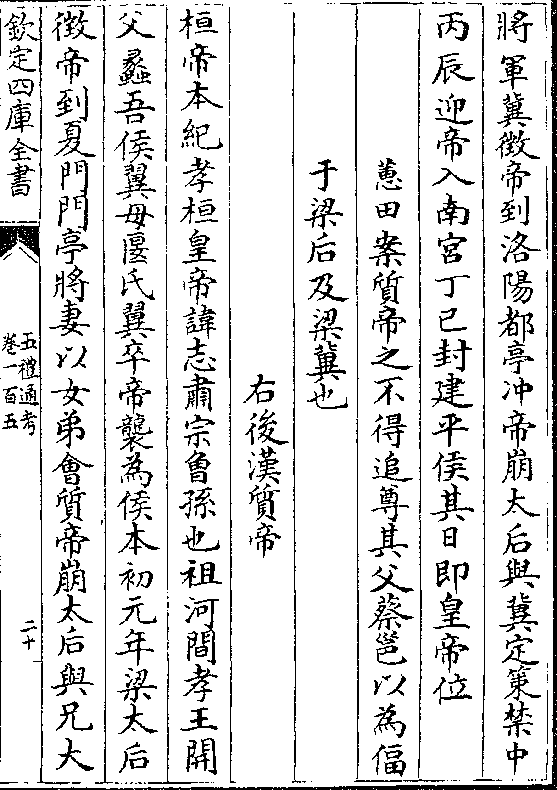 將軍冀徵帝到洛陽都亭冲帝崩太后與冀定策禁中
丙辰迎帝入南宮丁巳封建平侯其日即皇帝位
蕙田案質帝之不得追尊其父蔡邕以為偪
于梁后及梁冀也
右後漢質帝
桓帝本紀孝桓皇帝諱志肅宗曾孫也祖河間孝王開
父蠡吾侯翼母匽氏翼卒帝襲為侯本初元年梁太后
徵帝到夏門門亭將妻以女弟會質帝崩太后與兄大
欽定四庫全書
五禮通考
卷一百五
二十